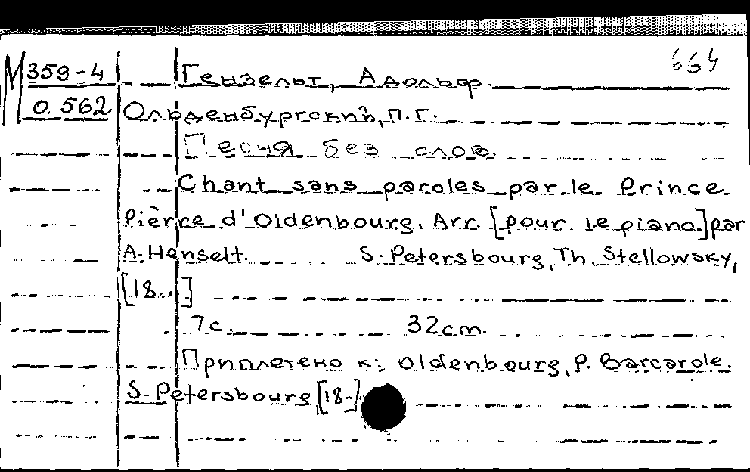 М 359-4 Гензельт, Адольф. 664
0.562 Ольденбургский, П.Г.
Песня без слов.
Chant sans paroles par le Prince
Pierre d'Oldenbourg. Arr. [pour le piano] par
A. Henselt. S.-Petersbourg, Th. Stellowsky,
[18..]
7с. 32cm.
Приплетено к: Oldenbourg, P. Barcarole.
S.-Petersbourg [18-]